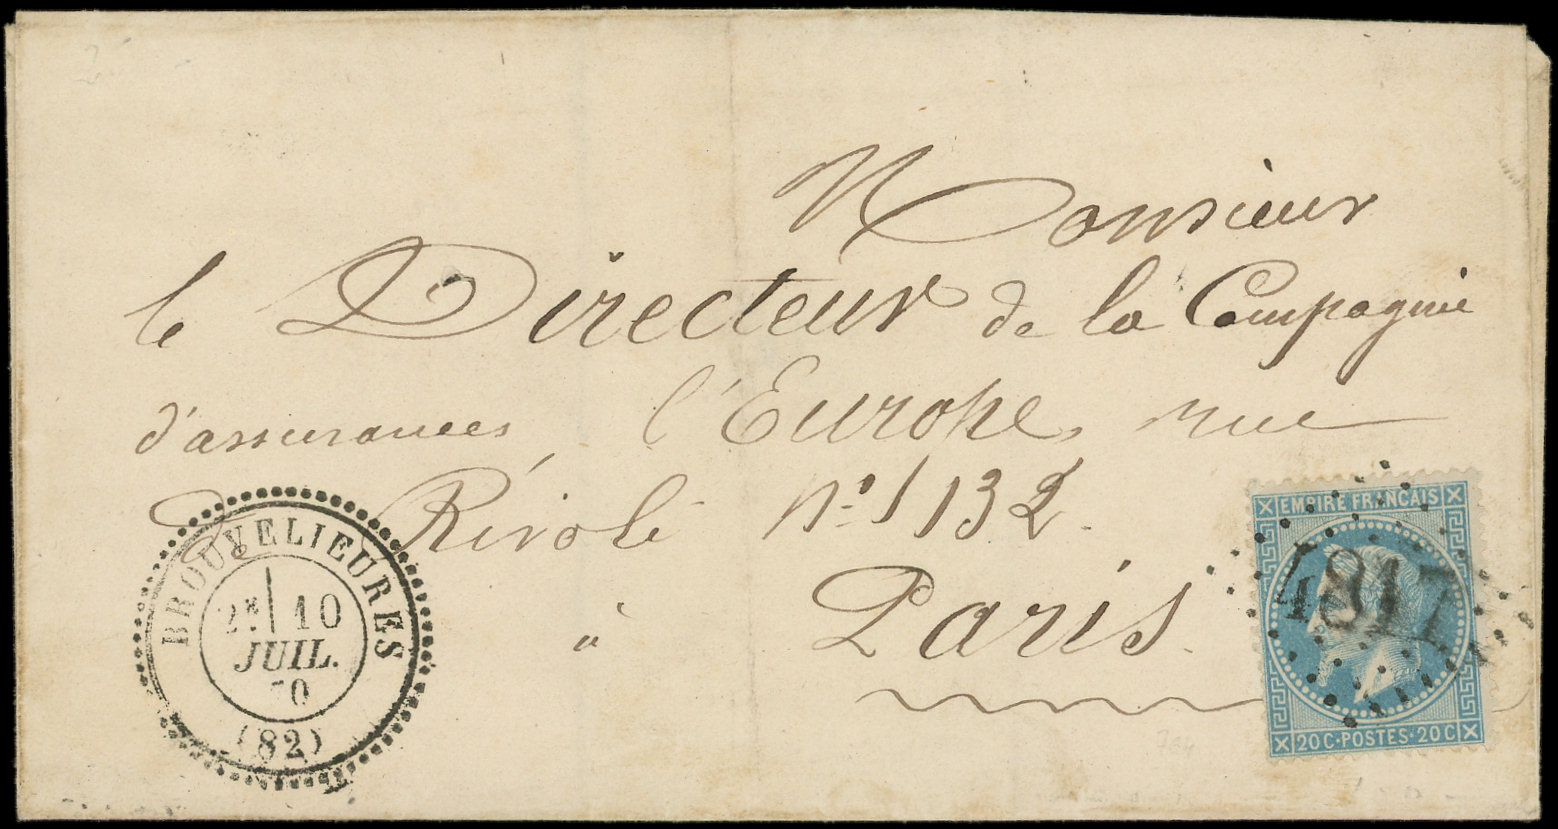 Monsieur
le Directeur de la Compagnie
d'assurances, l'Europe, rue
Rivoli n° 132
à Paris.
BROUVELIEURES
2E 10
JUIL.
70
(82)
EMPIRE FRANÇAIS
4817
20 C · POSTES · 20 C
764